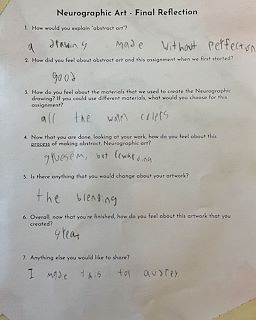 Neurographic Art - Final Reflection
1. How would you explain "abstract art"?
a drawing made without perfection
2. How did you feel about abstract art and this assignment when we first started?
good
3. How do you feel about the materials that we used to create the Neurographic
drawing? If you could use different materials, what would you choose for this
assignment?
all the warm colers
4. Now that you are done, looking at your work, how do you feel about this
process of making abstract, Neurographic art?
but
5. Is there anything that you would change about your artwork?
the blending
6. Overall, now that you're finished, how do you feel about this artwork that you
created?
great
7. Anything else you would like to share?
I made this for